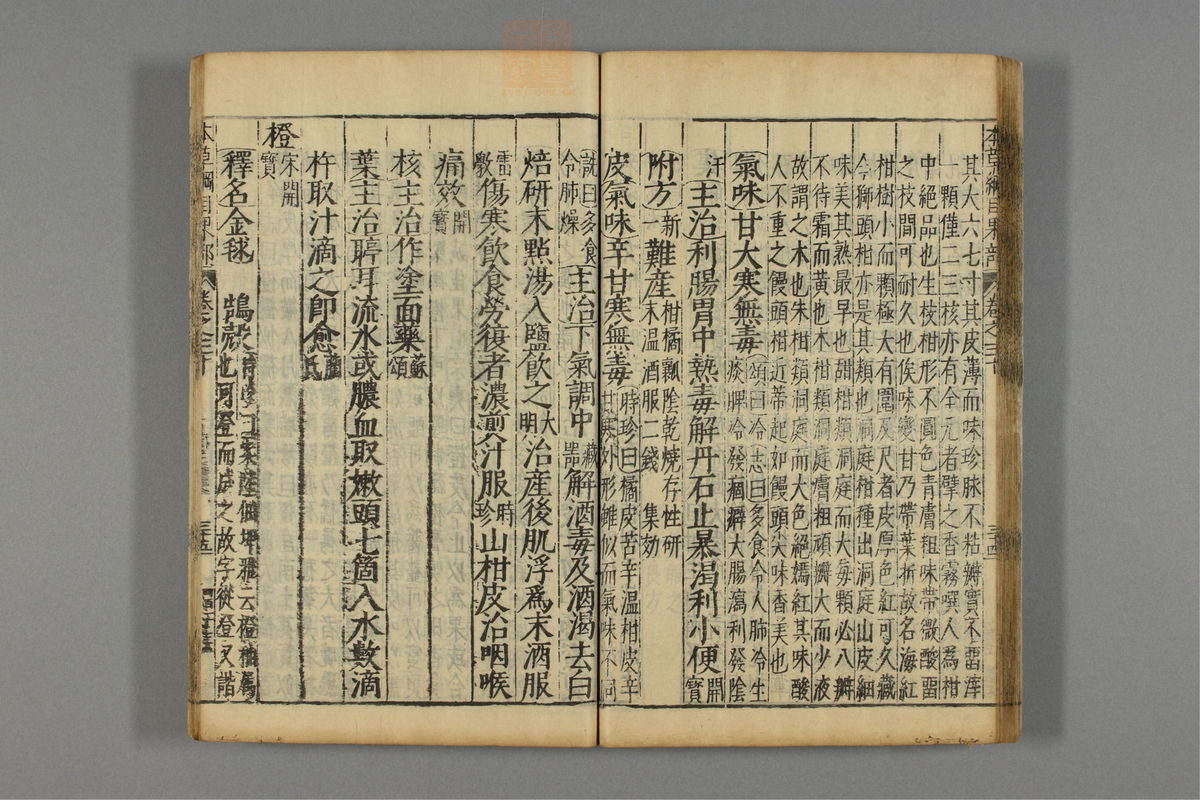 本草綱目果部 卷之三十 三十四
其大六七寸其皮薄而味珍脉不粘瓣實不留滓
一顆僅二三核亦有全无者擘之香霧噀人為柑
中絕品也生枝柑形不圓色青膚粗味帶微酸留
之枝間可耐久也俟味變甘乃帶葉折故名海紅
柑樹小而顆極大有圍及尺者皮厚色紅可久藏
今獅頭柑亦是其類也洞庭柑種出洞庭山皮細
味美其熟最早也甜柑類洞庭而大每顆必八瓣
不待霜而黃也木柑類洞庭膚粗頑瓣大而少液
故謂之木也朱柑類洞庭而大色絕嫣紅其味酸
人不重之饅頭柑近蒂起如饅頭尖味香美也
氣味甘大寒無毒 頌曰冷志曰多食令人肺冷生痰脾冷發痼癖大腸瀉利發陰
汗 主治利腸胃中熱毒解丹石止暴渴利小便 開寶
附方 新一 難產 柑橘瓤陰乾燒存性研末温酒服二錢 集効方
皮氣味辛甘寒無毒 時珍曰橘皮苦辛温柑皮辛甘寒外形雖似而氣味不同
詵曰多食令肺燥 主治下氣調中 藏器 解酒毒及酒渴去白
焙研末點湯入鹽飲之 大明 治產後肌浮爲末酒服
雷斆 傷寒飲食勞復者濃煎汁服 時珍 山柑皮治咽喉
痛效 開寶
核主治作塗面藥 蘇頌
葉主治聤耳流水或膿血取嫩頭七箇入水數滴
杵取汁滴之即愈 藺氏
橙 宋開寶
釋名金毬 鵠殼 時珍曰案陸佃埤雅云橙柚屬也可登而成之故字從登又諧
本草綱目果部 卷之三十 三十五